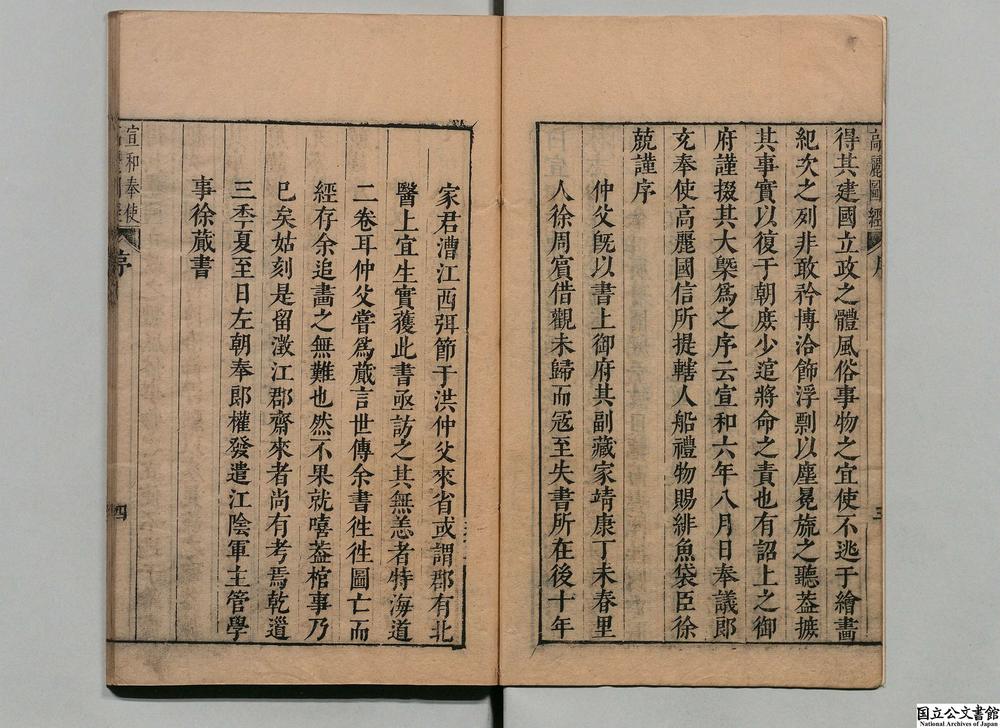 高麗圖經
序
三
得其建國立政之體風俗事物之宜使不逃于繪畫
紀次之列非敢衿博洽飾浮剽以塵冕旒之聽葢摭
其事實以復于朝庻少逭將命之責也有詔上之御
府謹掇其大槩爲之序云宣和六年八月日奉議郎
充奉使高麗國信所提轄人船禮物賜緋魚袋臣徐
兢謹序
仲父旣以書上御府其副藏家靖康丁未春里
人徐周賓借觀未歸而冦至失書所在後十年
家君漕江西弭節于洪仲父來省或謂郡有北
醫上宜生實獲此書亟訪之其無恙者特海道
二卷耳仲父嘗爲蕆言世傳余書徃徃圖亡而
經存余追畫之無難也然不果就嘻葢棺事乃
已矣姑刻是留澂江郡齋來者尚有考焉乾道
三秊夏至日左朝奉郎權發遣江陰軍主管學
事徐蕆書
宣和奉使
高麗圖經
序
四
国立公文書館
National Archives of Japan